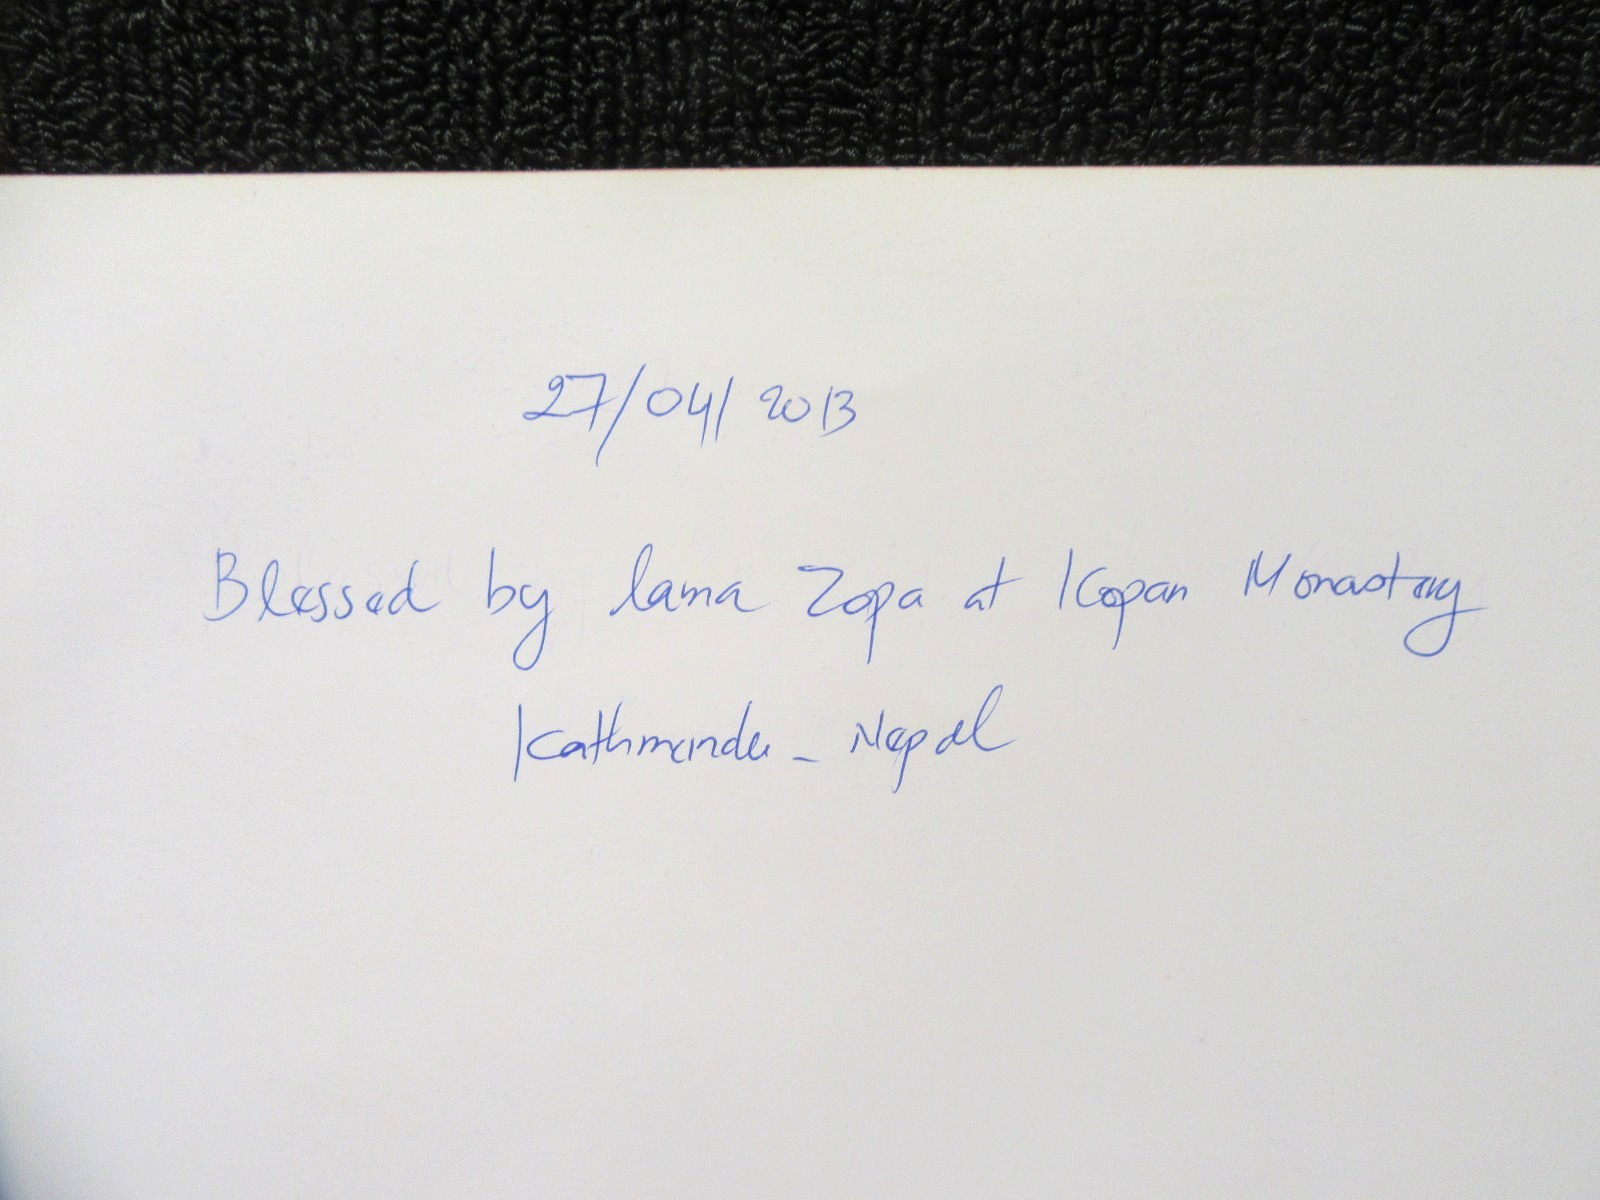 27/04/2013
Blessed by lama Zopa at Kopan Monastery
Kathmandu - Nepal